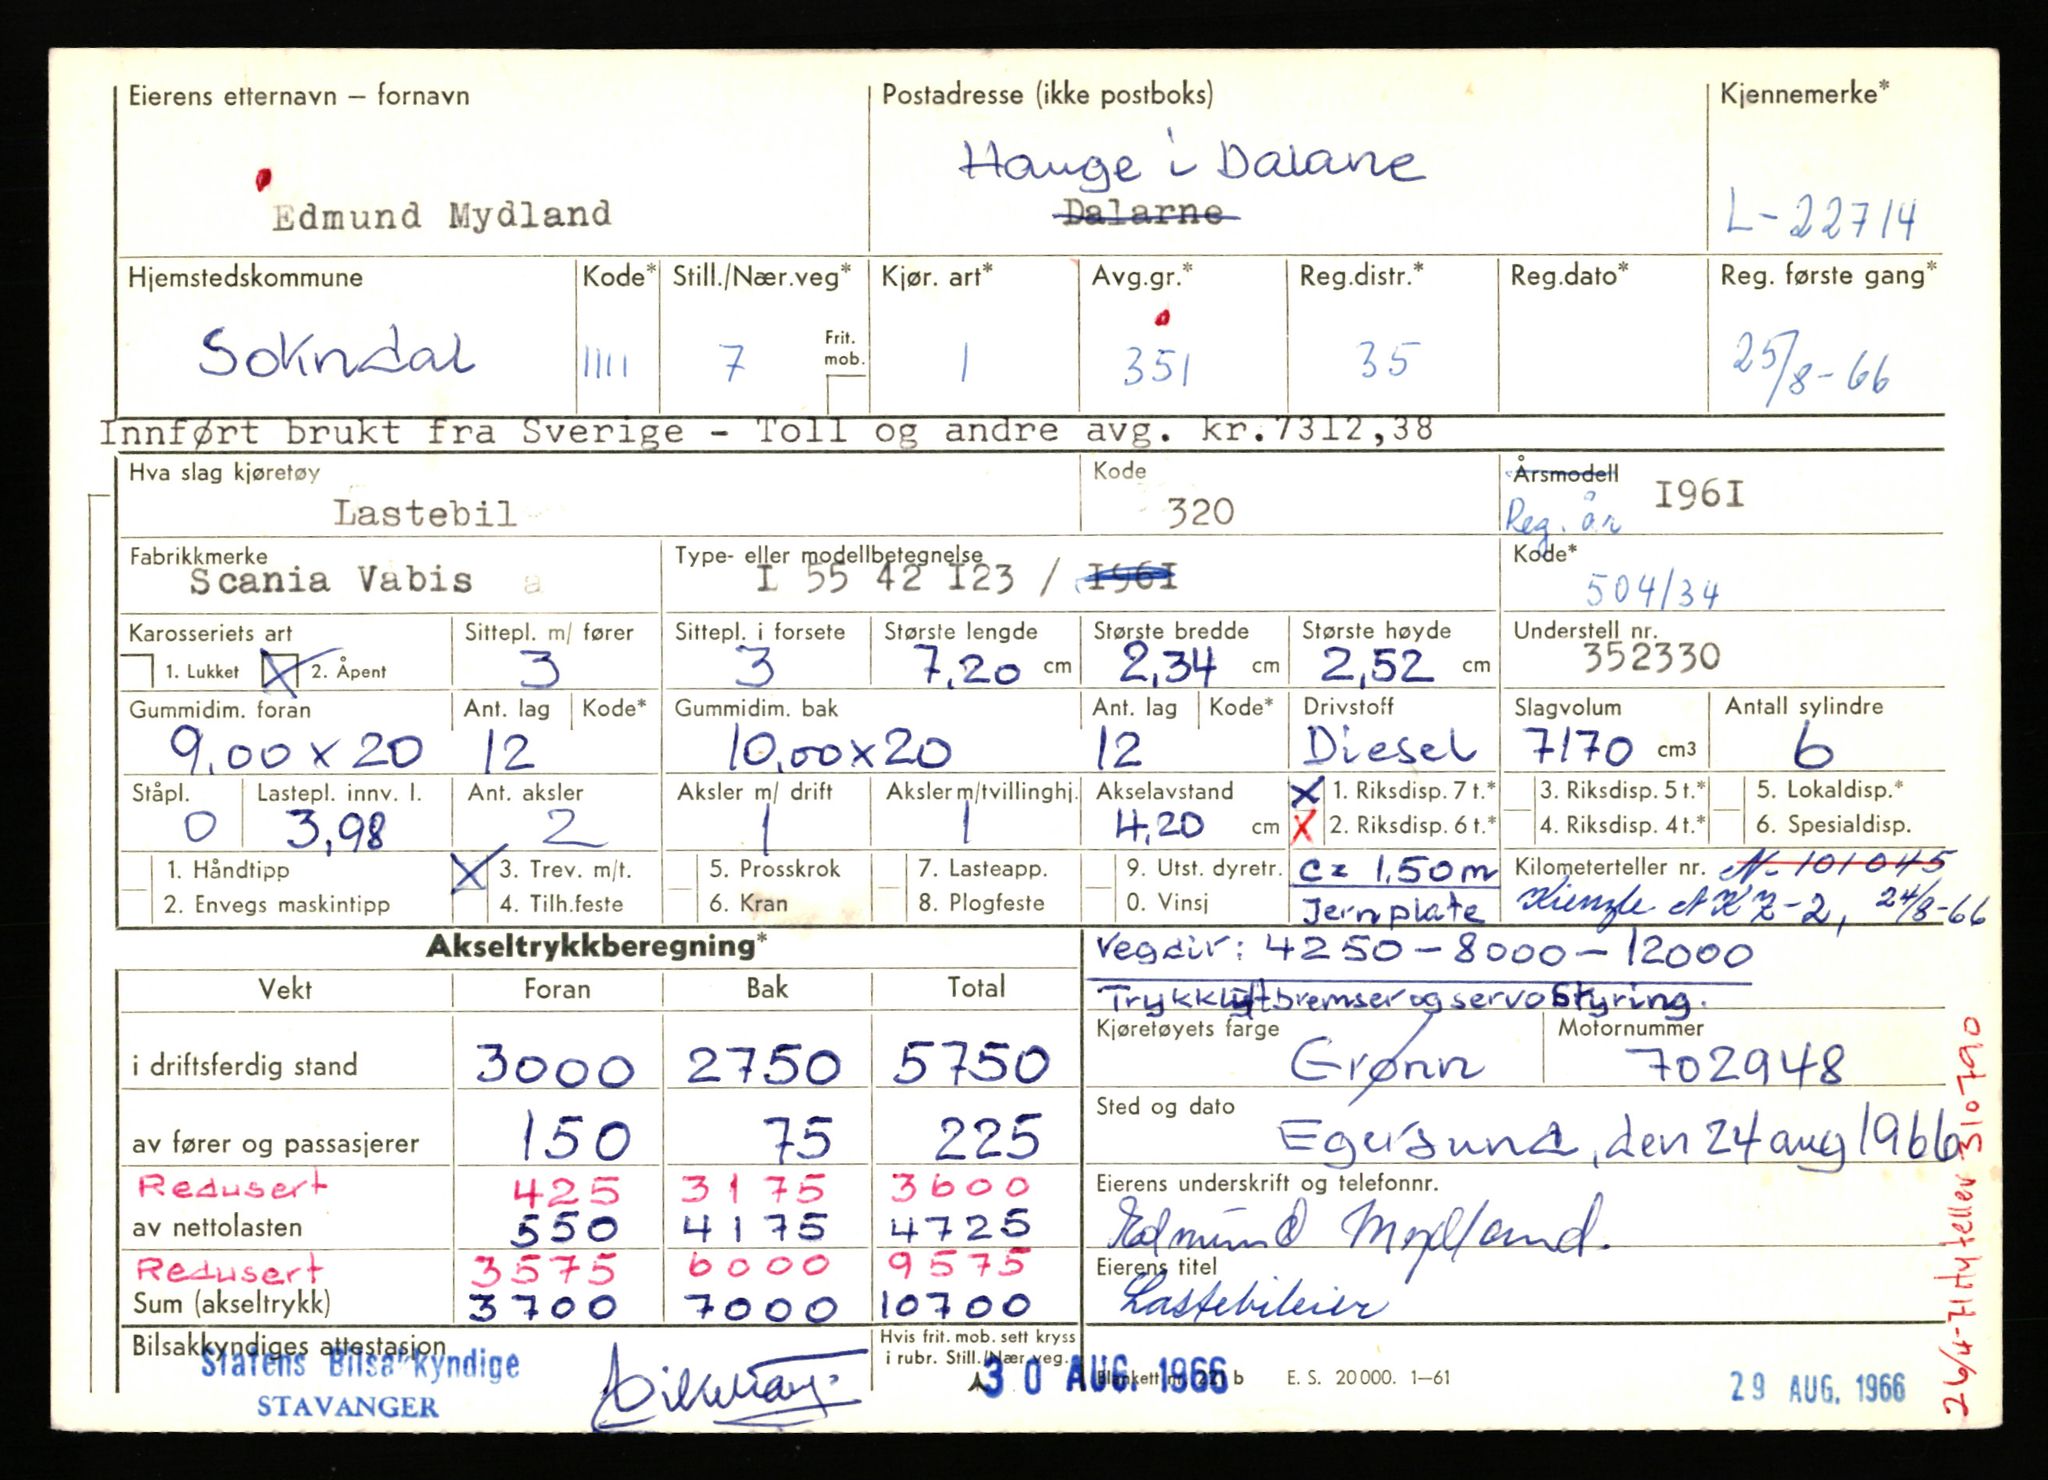 Eierens etternavn – fornavn Postadresse (ikke postboks) Kjennemerke*
Hauge i Dalane
Edmund Mydland Dalarne L-22714
Hjemstedskommune Kode* Still./Nær.veg* Kjør. art* Avg.gr.* Reg.distr.* Reg.dato* Reg. første gang*
Sokndal 1111 7 Frit. mob. 1 351 35 25/8-66
Innført brukt fra Sverige - Toll og andre avg. kr.7312,38
Hva slag kjøretøy Kode Årsmodell
Lastebil 320 Reg. år I96I
Fabrikkmerke Type- eller modellbetegnelse Kode*
Scania Vabis a L 55 42 I23 / I96I 504/34
Karosseriets art Sittepl. m/ fører Sittepl. i forsete Største lengde Største bredde Største høyde Understell nr.
1. Lukket 2. Åpent 3 3 7,20 cm 2,34 cm 2,52 cm 352330
Gummidim. foran Ant. lag Kode* Gummidim. bak Ant. lag Kode* Drivstoff Slagvolum Antall sylindre
9,00 x 20 12 10,00 x 20 12 Diesel 7170 cm3 6
Ståpl. Lastepl. innv. l. Ant. aksler Aksler m/ drift Aksler m/tvillinghj. Akselavstand 1. Riksdisp. 7 t.* 3. Riksdisp. 5 t.* 5. Lokaldisp.*
0 3,98 2 1 1 4,20 cm 2. Riksdisp. 6 t.* 4. Riksdisp. 4 t.* 6. Spesialdisp.
1. Håndtipp 3. Trev. m/t. 5. Prosskrok 7. Lasteapp. 9. Utst. dyretr. C= 1,50 m Kilometerteller nr. N- 101045
2. Envegs maskintipp 4. Tilh.feste 6. Kran 8. Plogfeste 0. Vinsj Jernplate Kienzle 2, 24/8-66
Akseltrykkberegning* Vegdir: 4250-8000-12000
Vekt Foran Bak Total Trykkluftbremser og servostyring.
Kjøretøyets farge Motornummer
i driftsferdig stand 3000 2750 5750 Grønn 702948
Sted og dato
av fører og passasjerer 150 75 225 Egersund, den 24 aug 1966
Redusert 425 3175 3600 Eierens underskrift og telefonnr.
av nettolasten 550 4175 4725 Edmund Mydland.
Redusert 3575 6000 9575 Eierens titel
Sum (akseltrykk) 3700 7000 10700 Lastebileier
Bilsakkyndiges attestasjon Hvis frit. mob. sett kryss
i rubr. Still./Nær.veg.
Statens Bilsakkyndige 30 AUG. 1966 Blankett nr. 221 b E. S. 20 000. 1–61 29 AUG. 1966
STAVANGER
26/4-71 Ny teller 310790